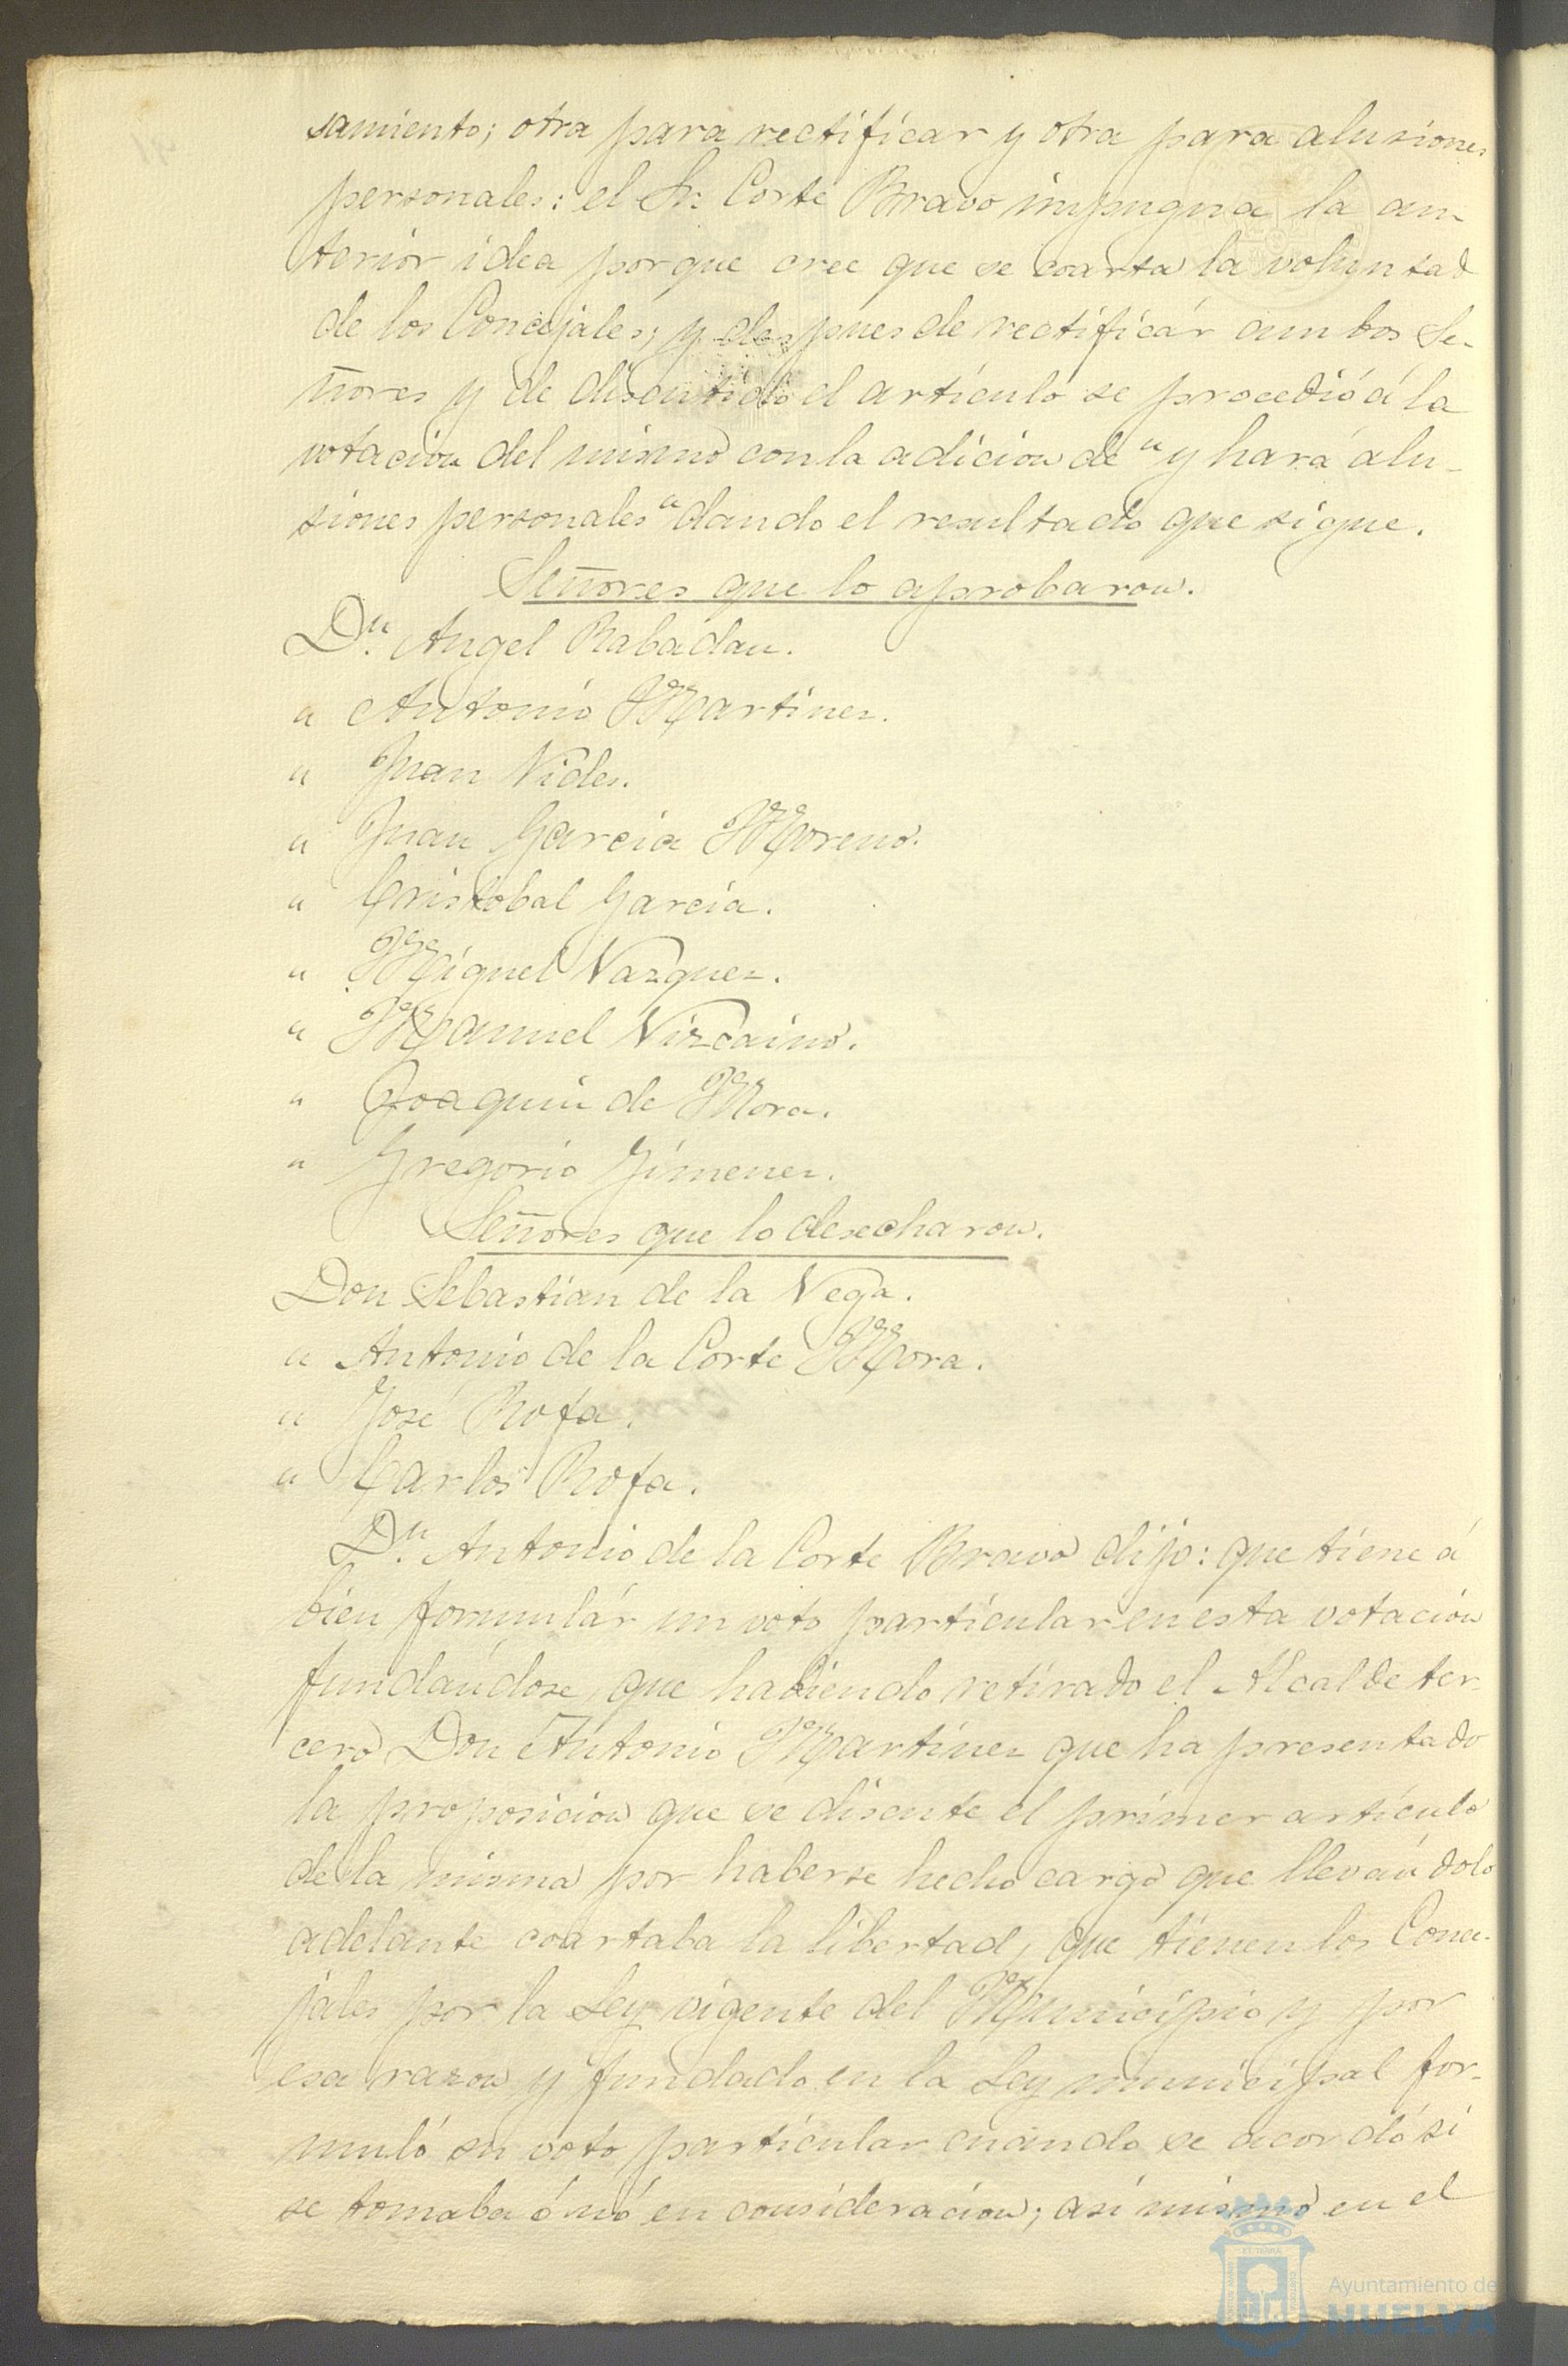 samiento; otra para rectificar y otra para alusiones
personales: el Sr. Corte Bravo impugna la an-
terior idea porque cree que se coarta la voluntad
de los Concejales; y despues de rectificár ambos Se-
ñores y de discutido el artículo se procedió á la
votacion del mismo con la adicion de " y hará alu-
siones personales " dando el resultado que sigue.
Señores que lo aprobaron.
Dn. Angel Rabadan.
" Antonio Martinez.
" Juan Vides.
" Juan Garcia Moreno.
" Cristobal Garcia.
" Miguel Vazquez.
" Manuel Vizcaino.
" Joaquin de Mora.
" Gregorio Jimenez.
Señores que lo desecharon.
Don Sebastian de la Vega.
" Antonio de la Corte Mora.
" José Rofa.
" Carlos Rofa.
Dn. Antonio de la Corte Bravo dijo: que tiene á
bien formulár un voto particular en esta votacion
fundandose, que habiendo retirado el Alcalde ter-
cero Don Antonio Martinez que ha presentado
la proposicion que se discute el primer artículo
de la misma por haberse hecho cargo que llevandolo
adelante coartaba la libertad, que tienen los Conce-
jales por la Ley vigente del Municipio y por
esa razon y fundado en la Ley municipal for-
muló su voto particular cuando se acordó si
se tomaba ó nó en consideracion; asi mismo en el
Ayuntamiento de
HUELVA